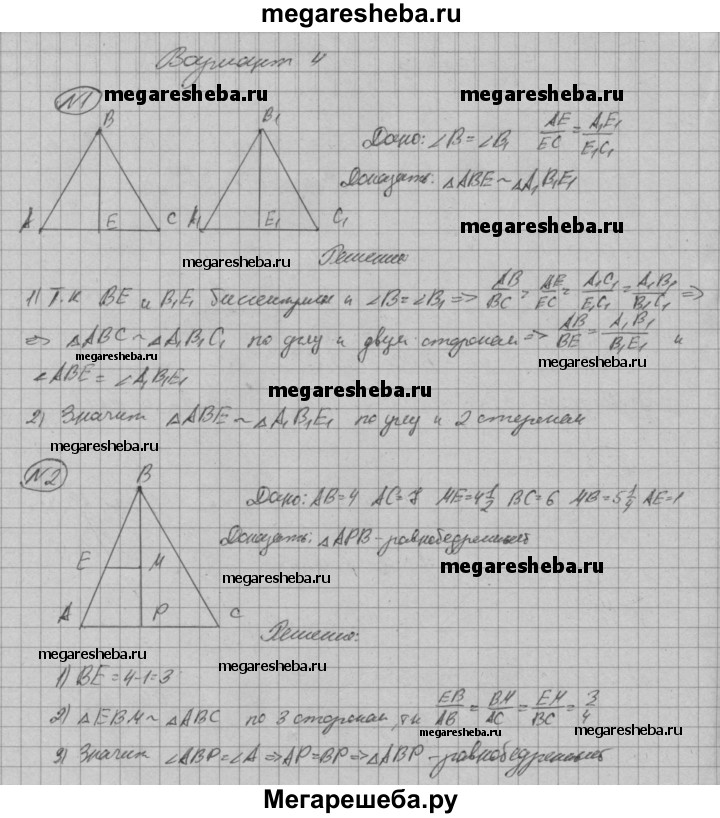 megaresheba.ru
Вариант 4
№1
megaresheba.ru megaresheba.ru
B B₁
A E C A₁ E₁ C₁
Дано: ∠B = ∠B₁ AE/EC = A₁E₁/E₁C₁
Доказать: △ABE ~ △A₁B₁E₁
megaresheba.ru
megaresheba.ru
Решение
1) Т.к BE и B₁E₁ биссектрисы и ∠B = ∠B₁ => AB/BC = AE/EC = A₁C₁/E₁C₁ = A₁B₁/B₁C₁ =>
=> △ABC ~ △A₁B₁C₁ по углу и двум сторонам => AB/BE = A₁B₁/B₁E₁ и
megaresheba.ru megaresheba.ru
∠ABE = ∠A₁B₁E₁
megaresheba.ru
2) Значит △ABE ~ △A₁B₁E₁ по углу и 2 сторонам
megaresheba.ru megaresheba.ru
№2
B
E M
A P C
Дано: AB=4 AC=7 ME=4 1/2 BC=6 MB=5 1/4 AE=1
Доказать: △APB - равнобедренный
megaresheba.ru megaresheba.ru
Решение:
megaresheba.ru megaresheba.ru
1) BE = 4-1=3
2) △EBM ~ △ABC по 3 сторонам, т.к EB/AB = BM/AC = EM/BC = 3/4
megaresheba.ru megaresheba.ru
3) Значит ∠ABP = ∠A => AP = BP => △ABP - равнобедренный
megaresheba.ru megaresheba.ru
Мегарешеба.ру